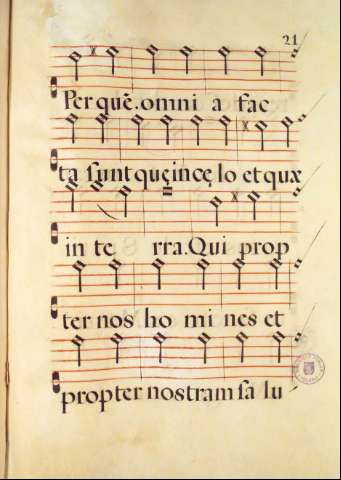 21
Per quē. omni a fac
ta sunt quęincę lo et quæ
in te rra. Qui prop
ter nos ho mi nes et
propter nostram sa lu